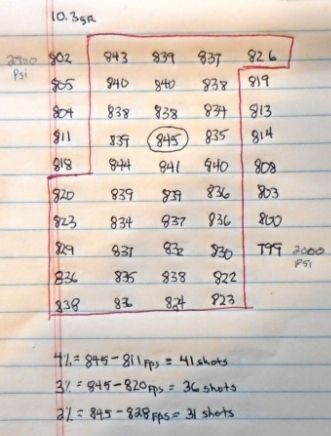 10.3gr
2900 802 843 839 837 826
Psi
805 840 840 838 819
804 838 838 834 813
811 839 845 835 814
818 844 841 840 808
820 839 839 836 803
823 834 837 836 800
829 837 832 830 799 2000
PSI
836 835 838 822
838 836 824 823
4% = 845-811 FPS = 41 shots
3% = 845-820 FPS = 36 shots
2% = 845-828 FPS = 31 shots